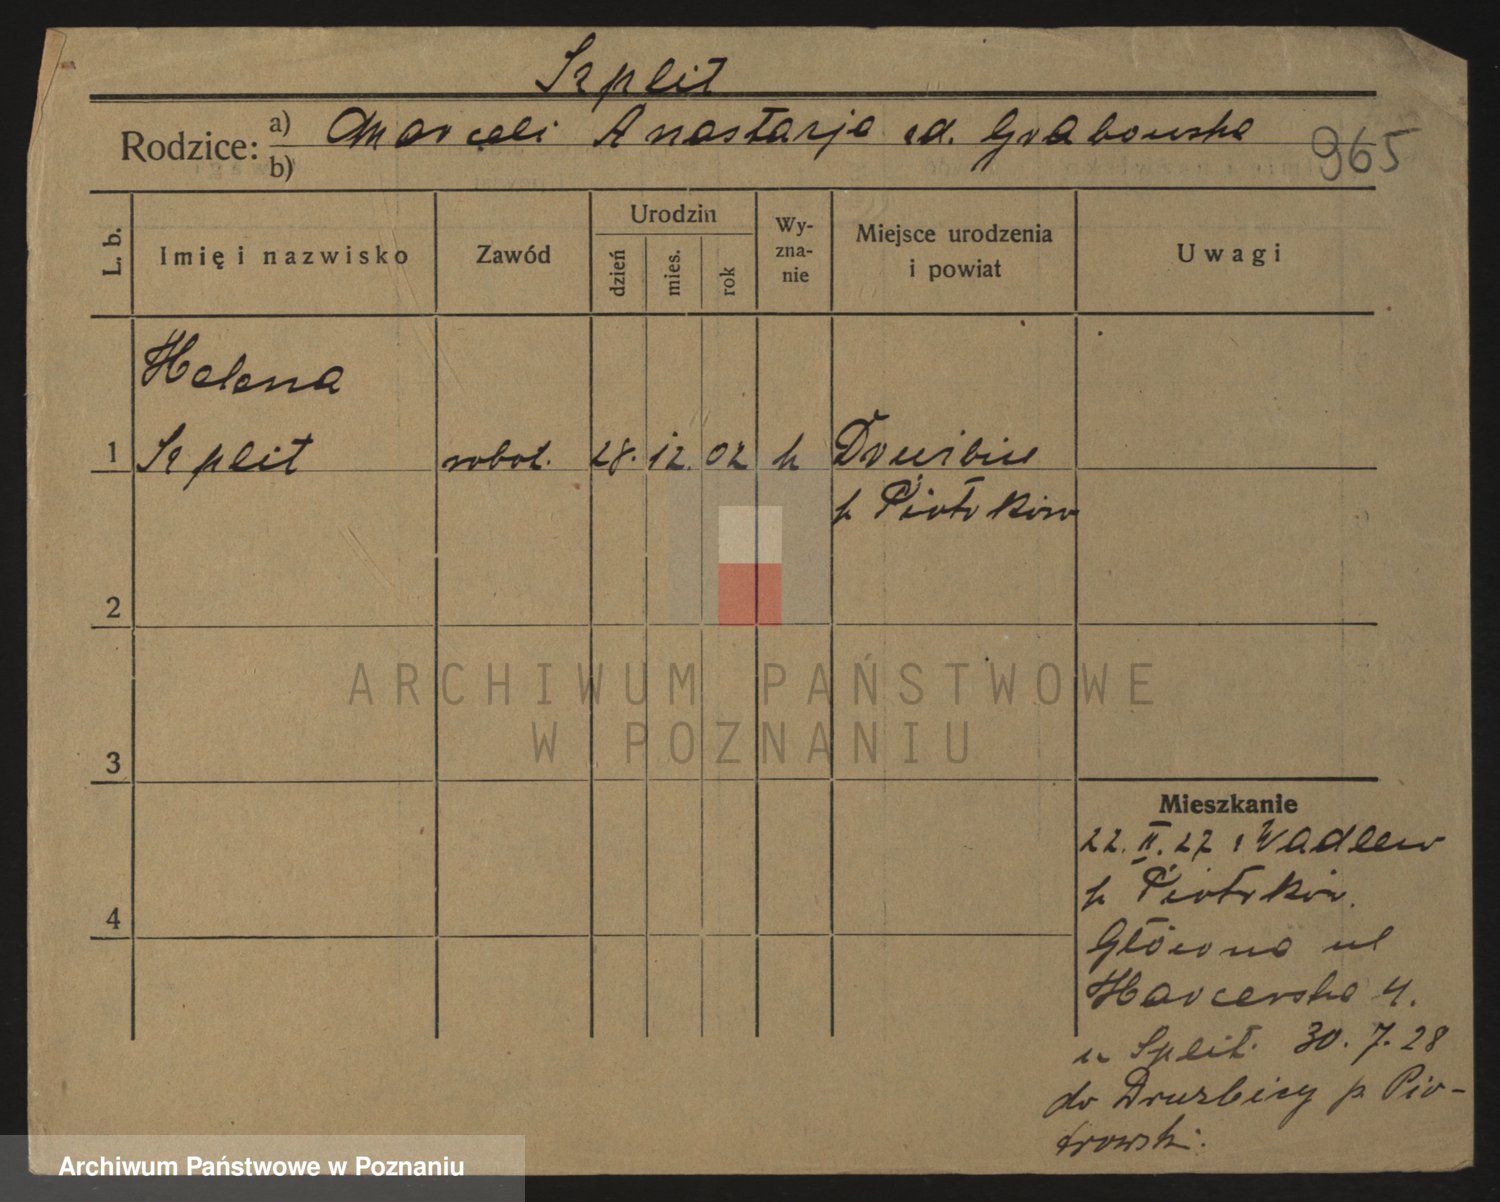 Szplit
Rodzice: a) Marceli Anastazja zd. Grabowska
b)
965
L. b.
Imię i nazwisko
Zawód
Urodzin
dzień
mies.
rok
Wy-
zna-
nie
Miejsce urodzenia
i powiat
Uwagi
Helena
1 Szplit robot. 28. 12. 02 k
p. Piotrków
2
3
4
ARCHIWUM PAŃSTWOWE
W POZNANIU
Mieszkanie
22. II. 27 z Wadlew
p. Piotrków.
Główna ul
Harcerska 4.
u Split. 30. 7. 28
do Druzbicy p. Pio-
trowski.
Archiwum Państwowe w Poznaniu